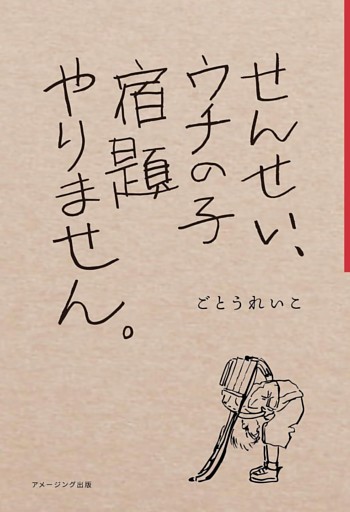 せんせい、
ウチの子
宿題
やりません。
ごとうれいこ
アメージング出版